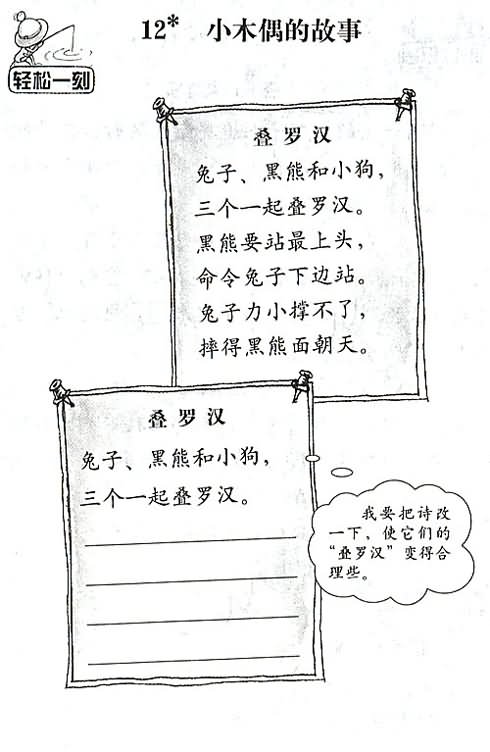 12* 小木偶的故事
轻松一刻
叠罗汉
兔子、黑熊和小狗，
三个一起叠罗汉。
黑熊要站最上头，
命令兔子下边站。
兔子力小撑不了，
摔得黑熊面朝天。
叠罗汉
兔子、黑熊和小狗，
三个一起叠罗汉。
我要把诗改
一下，使它们的
“叠罗汉”变得合
理些。